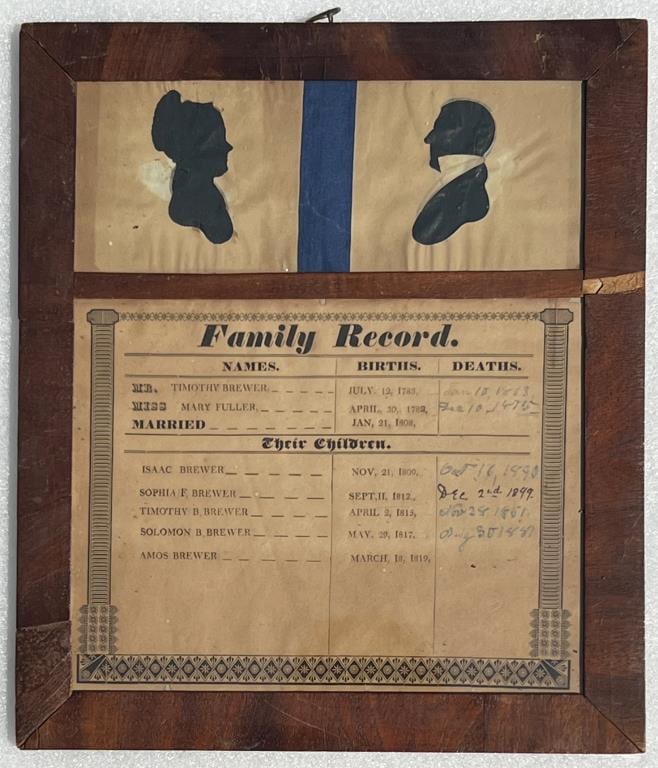 Family Record.
NAMES. BIRTHS. DEATHS.
MR. TIMOTHY BREWER, JULY. 12, 1783, Jan 10, 1863
MISS MARY FULLER, APRIL, 30, 1782, Dec 10, 1875
MARRIED JAN, 21, 1808,
Their Children.
ISAAC BREWER NOV, 21, 1809, Oct 16, 1890
SOPHIA F, BREWER SEPT, 11, 1812, Dec 2nd 1899
TIMOTHY B, BREWER APRIL 2, 1815, Nov 28 1861
SOLOMON B, BREWER MAY, 29, 1817. Aug 30
AMOS BREWER MARCH, 18, 1819,